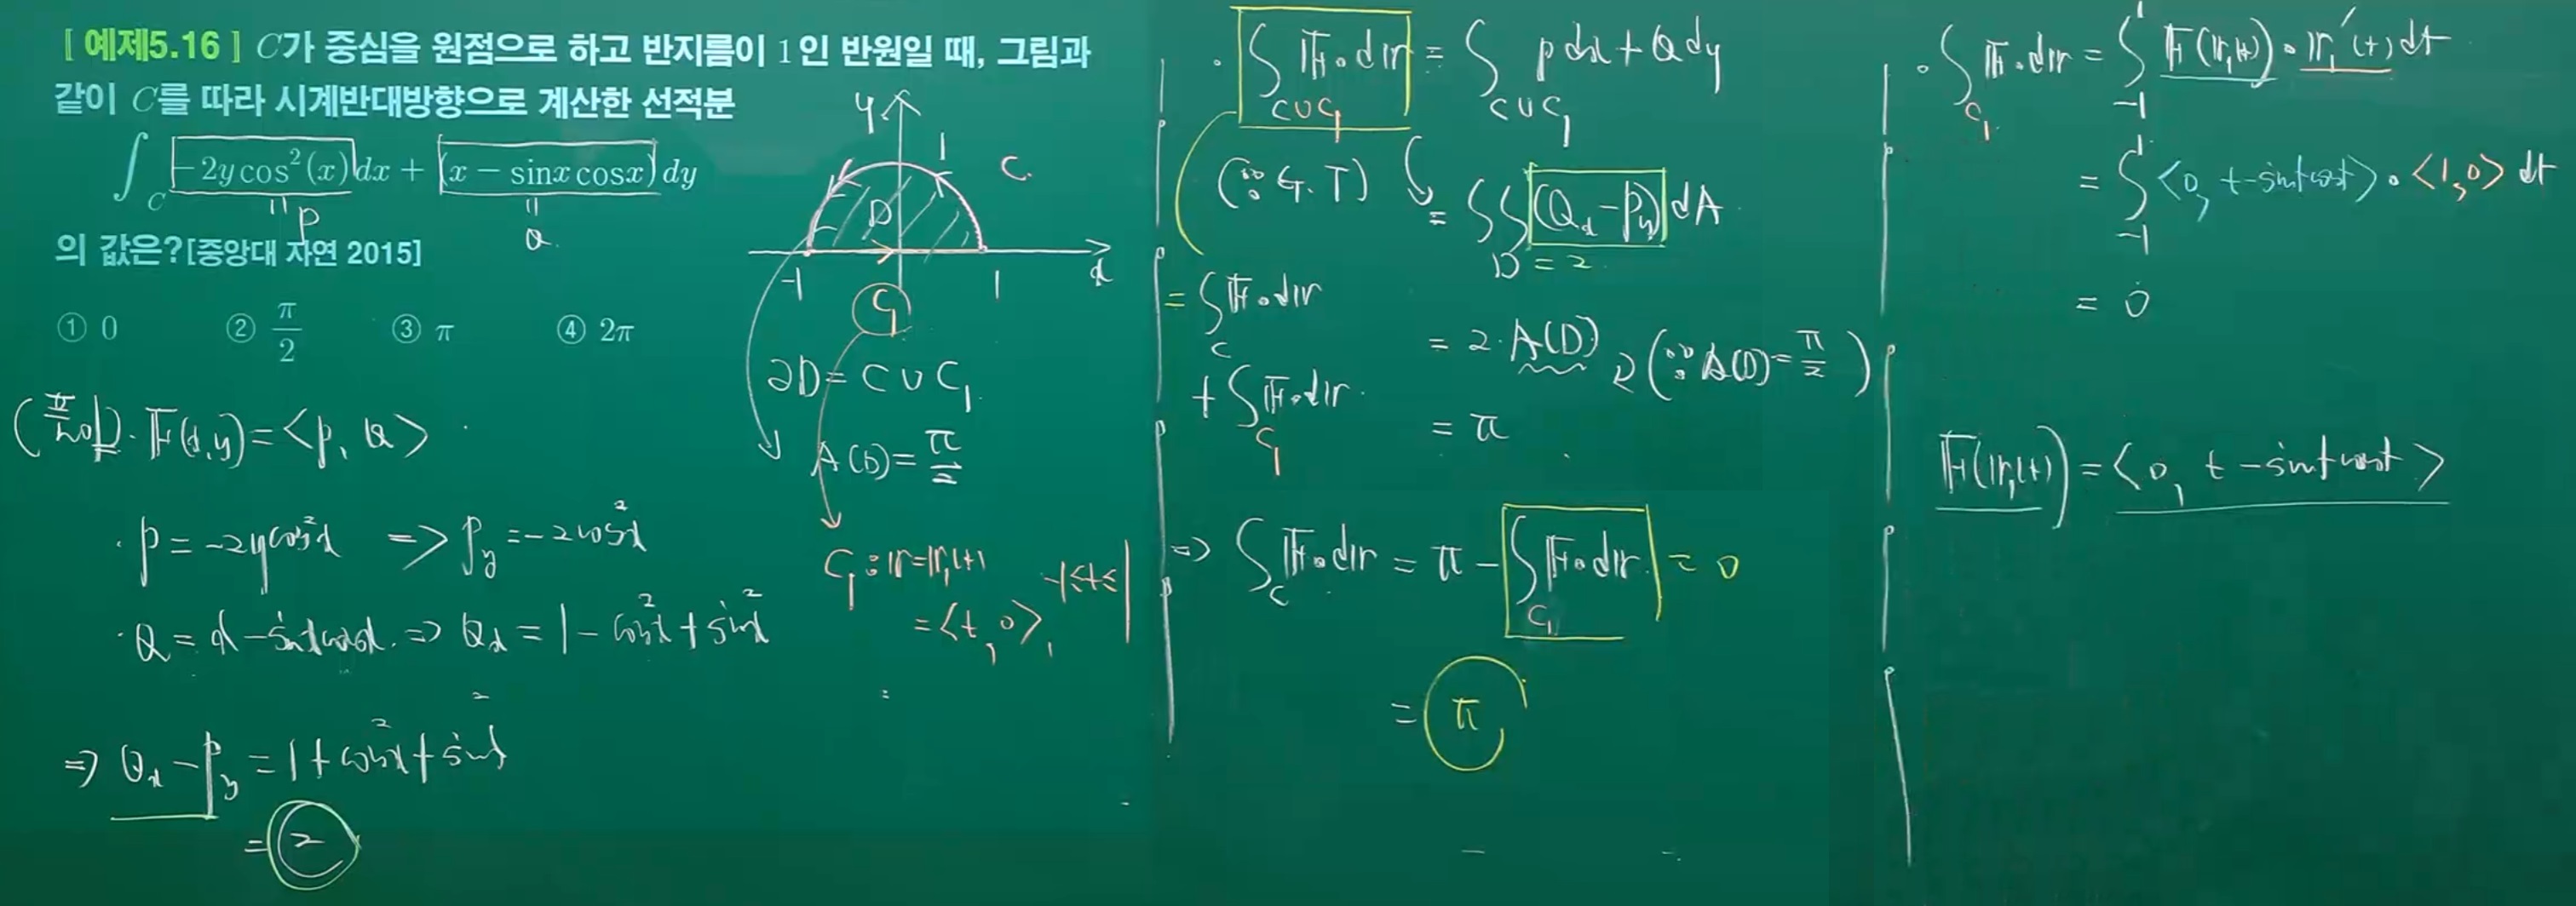 [ 예제5.16 ] C가 중심을 원점으로 하고 반지름이 1인 반원일 때, 그림과
같이 C를 따라 시계반대방향으로 계산한 선적분
∫_C -2ycos²(x)dx + (x - sinxcosx)dy
" "
P Q
의 값은?[중앙대 자연 2015]
① 0 ② π/2 ③ π ④ 2π
y
1
C
D
-1 1 x
C₁
∂D = C ∪ C₁
A(D) = π/2
C₁ : r = r₁(t)
= <t, 0>, -1≤t≤1
F(x,y) = <P, Q>
· P = -2ycos²x ⇒ P_y = -2cos²x
· Q = x - sinxcosx ⇒ Q_x = 1 - cos²x + sin²x
⇒ Q_x - P_y = 1 + cos²x + sin²x
= 2
· ∫_{C∪C₁} F·dr = ∫_{C∪C₁} Pdx + Qdy
(∵ G.T) = ∬_D (Q_x - P_y) dA
= 2
= ∫_C F·dr
+ ∫_{C₁} F·dr
= 2·A(D) (∵ A(D) = π/2)
= π
⇒ ∫_C F·dr = π - ∫_{C₁} F·dr = 0
= π
· ∫_{C₁} F·dr = ∫_{-1}^{1} F(r₁(t))·r₁′(t)dt
= ∫_{-1}^{1} <0, t-sintcost>·<1,0> dt
= 0
F(r₁(t)) = <0, t - sintcost>